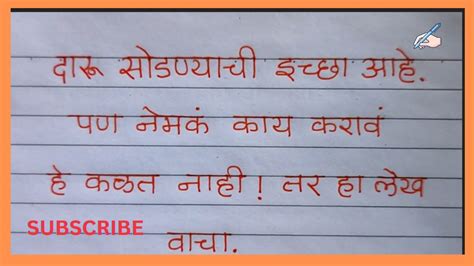 दारू सोडण्याची इच्छा आहे.
पण नेमकं काय करावं
हे कळत नाही! तर हा लेख
SUBSCRIBE
वाचा.